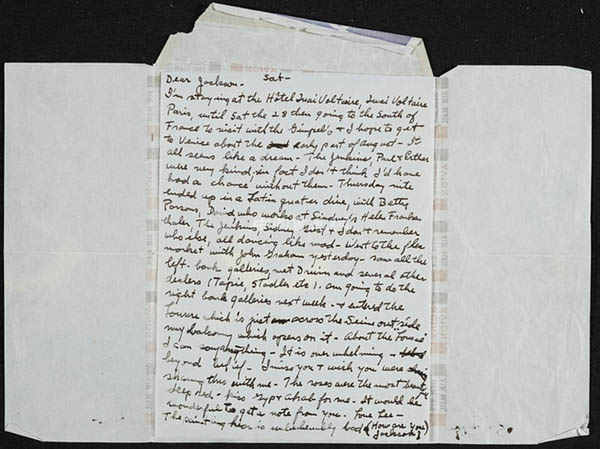 Sat-
Dear Jackson-
I'm staying at the Hôtel Quai Voltaire, Quai Voltaire
Paris, until Sat the 28 then going to the South of
France to visit with the Gimpel's & I hope to get
to Venice about the early part of August - It
all seems like a dream - The Jenkins, Paul & Esther
were very kind, in fact I don't think I'd have
had a chance without them - Thursday nite
ended up in a Latin quarter dive, with Betty
Parsons, David who works at Sindney's, Helen Franken
thaler, The Jenkins, Sidney Giest & I don't remember
who else, all dancing like mad - Went to the flea
market with John Graham yesterday - saw all the
left-bank galleries, met Druin and several other
dealers (Tapie, Stadler etc). am going to do the
right bank galleries next week - & entered the
Louvre which is just across the Seine outside
my balcony which opens on it - About the "Louvre"
I can say anything - It is over whelming -
beyond belief - I miss you & wish you were
sharing this with me - The roses were the most
deep red - Kiss Gyp & Ahab for me - It would be
wonderful to get a note from you. Love Lee -
The painting hear is unbelievably bad (How are you
Jackson?)
MOVA
JIAM RIA